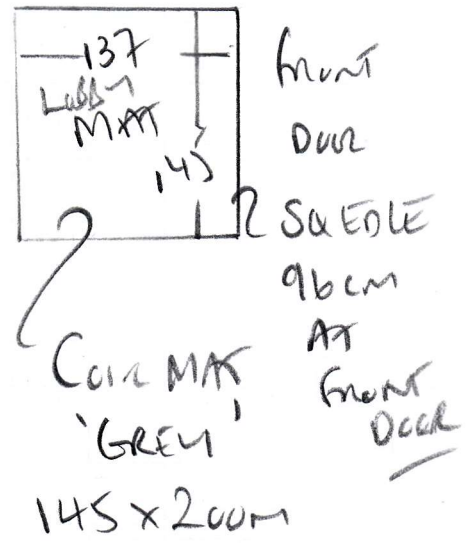 137
LOBBY
MAT
145
FRONT
DOOR
SQ EDGE
96cm
AT
FRONT
DOOR
COIR MAT
'GREY'
145 x 200m